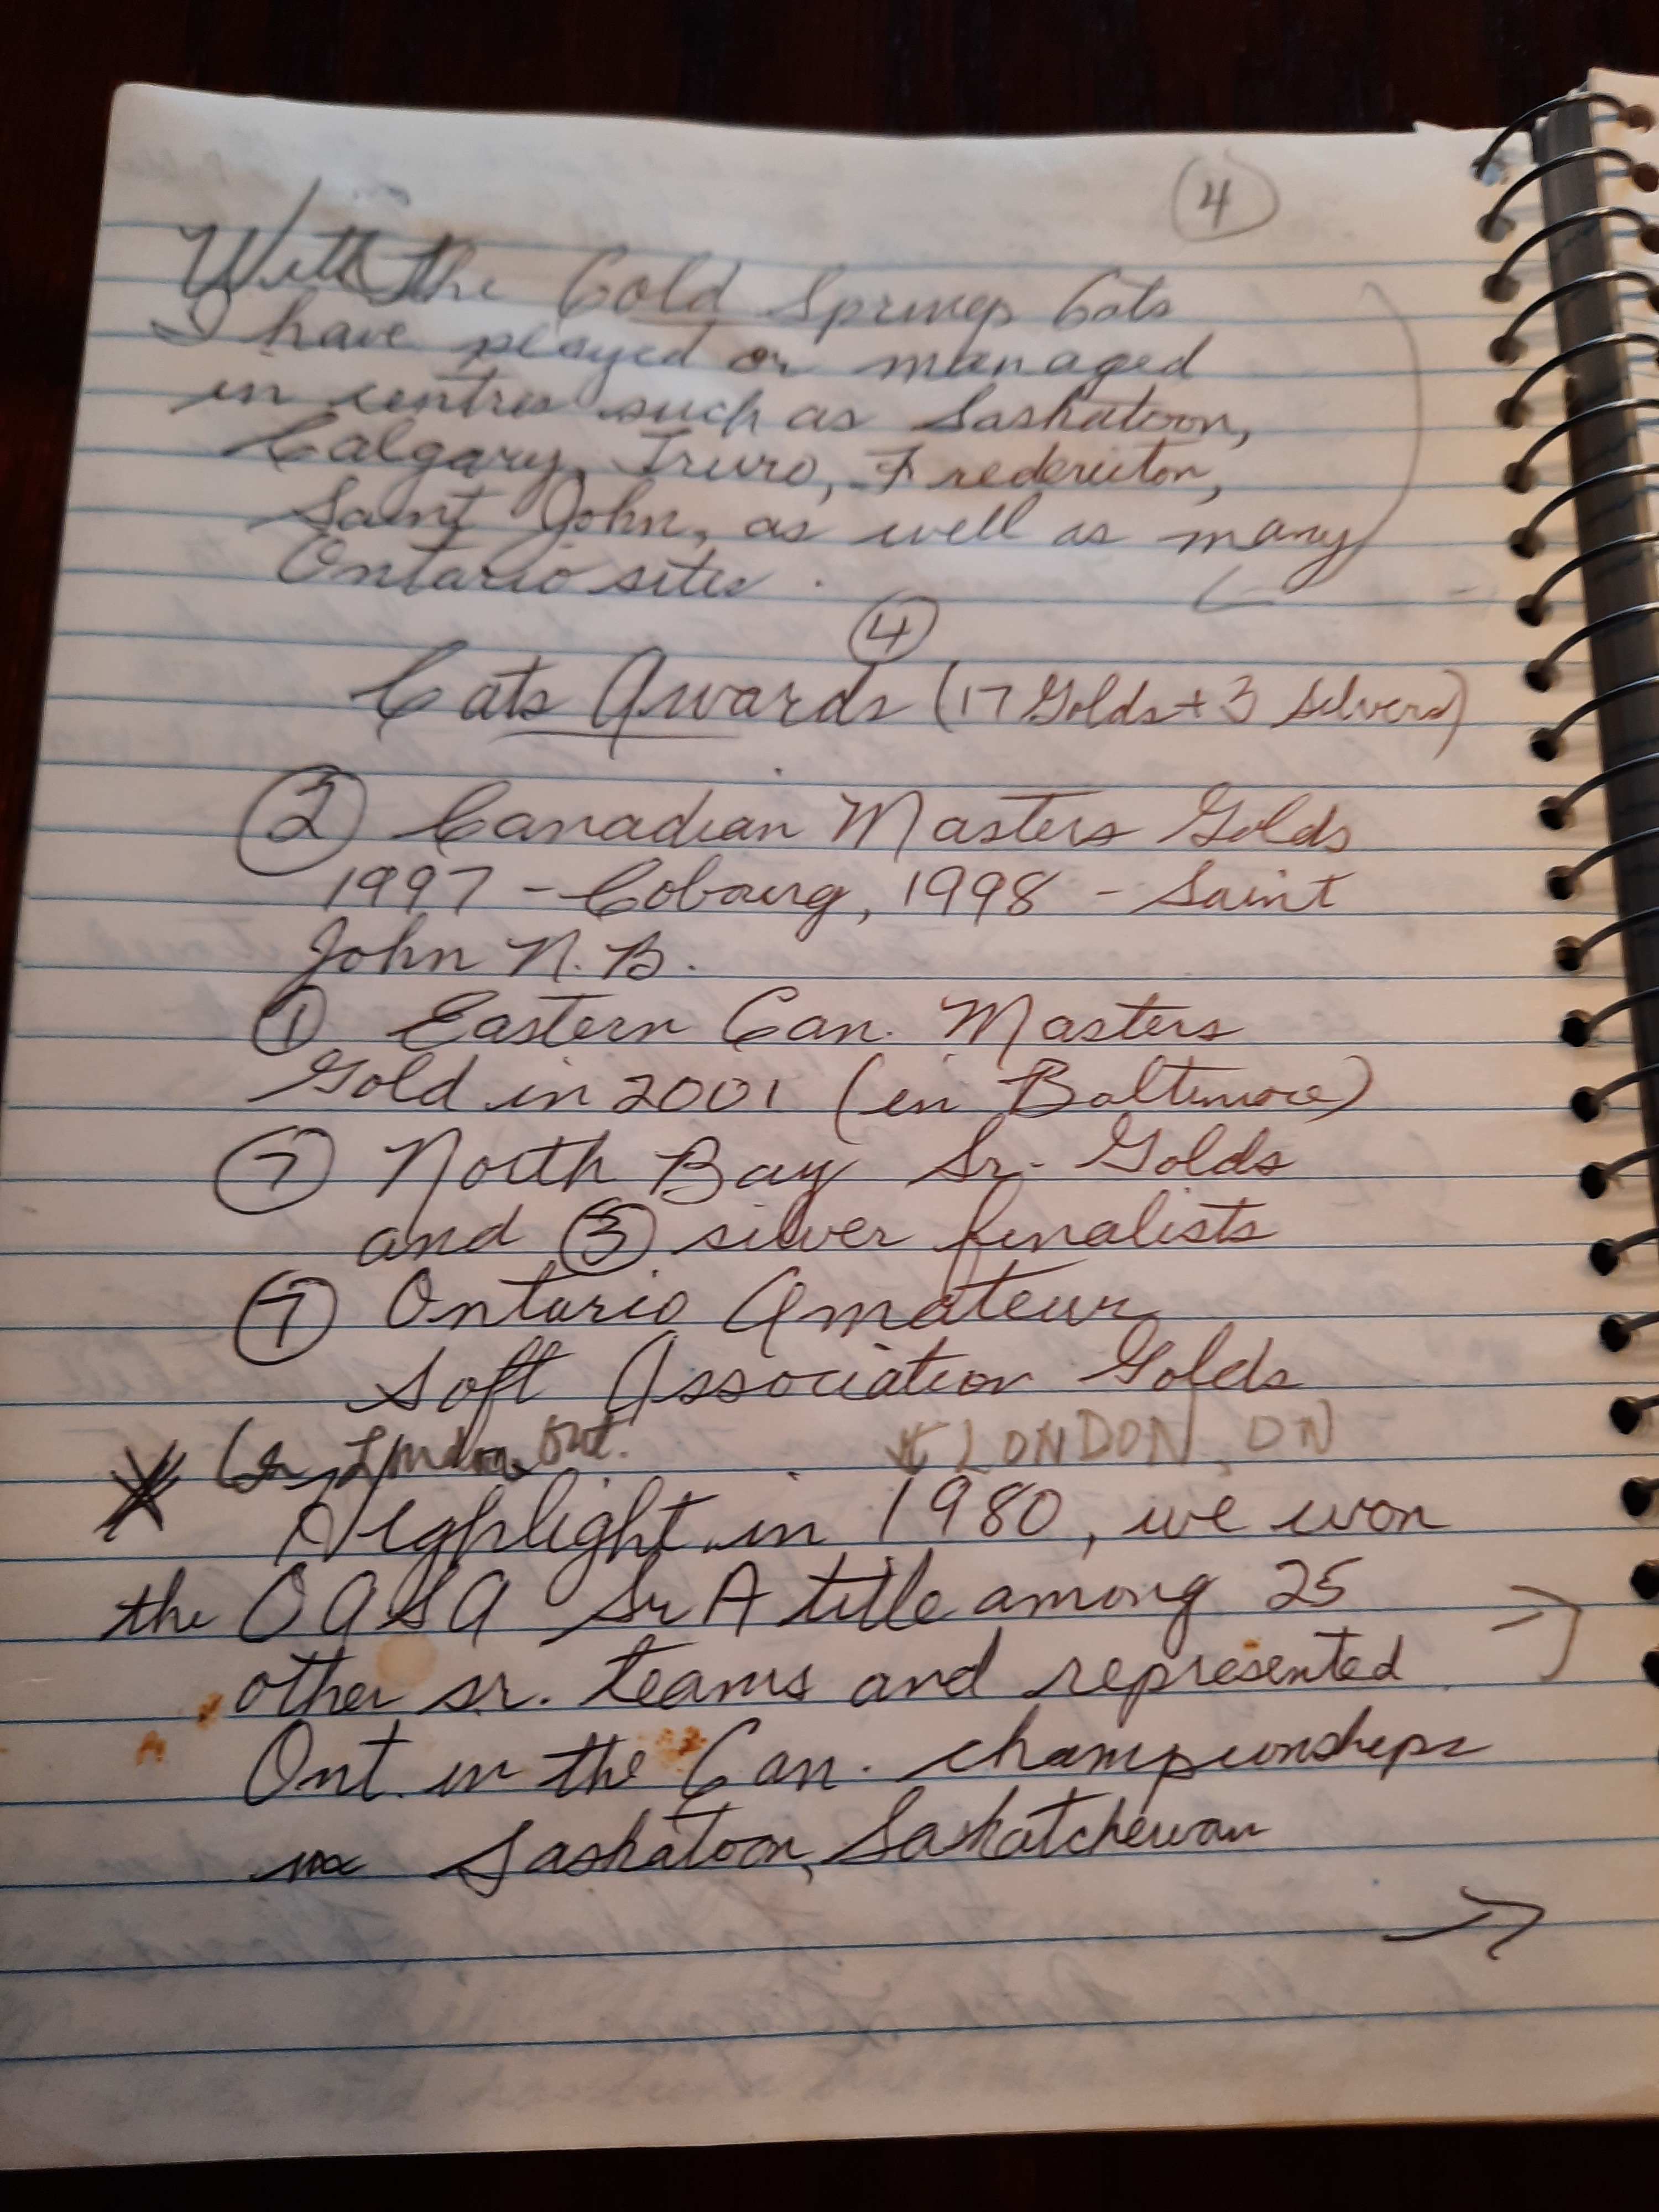 4
With the Cold Springs Cats
I have played or managed
in centres such as Saskatoon,
Calgary, Truro, Fredericton,
Saint John, as well as many
Ontario sites.
4
Cats Awards (17 Golds + 3 Silvers)
2 Canadian Masters Golds
1997 - Cobourg, 1998 - Saint
John N.B.
1 Eastern Can. Masters
Gold in 2001 (in Baltimore)
7 North Bay Sr. Golds
and 3 silver finalists
7 Ontario Amateur
Soft Association Golds
* In London, Ont. * LONDON, ON
Highlight in 1980, we won
the OASA Sr A title among 25
other sr. teams and represented
Ont. in the Can. championships
in Saskatoon, Saskatchewan